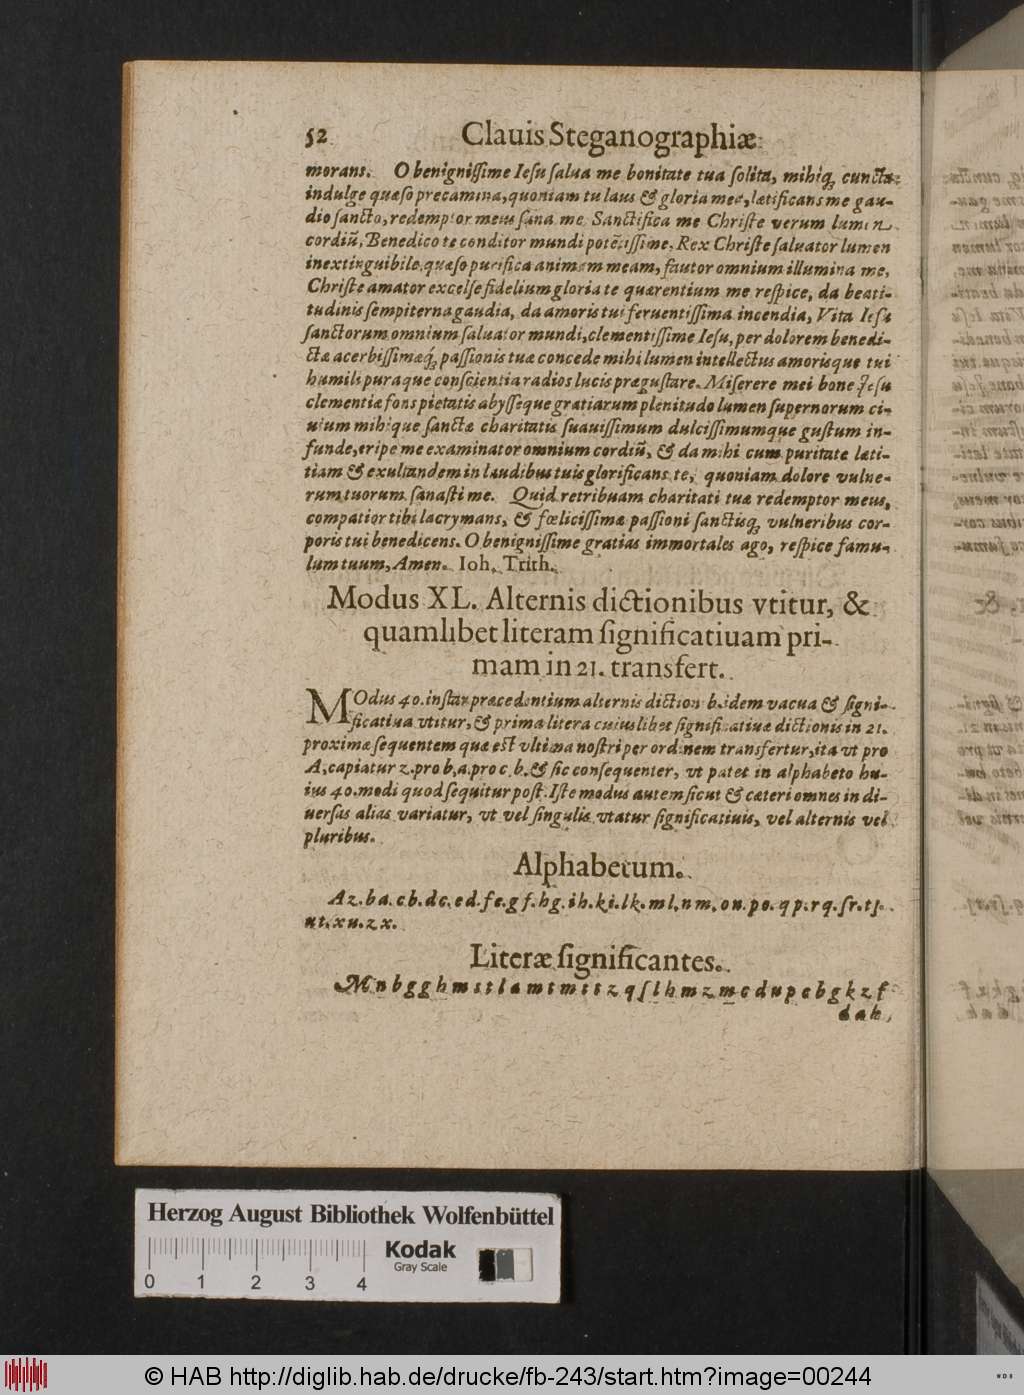 52 Clauis Steganographiæ
morans. O benignißime Iesu salua me bonitate tua solita, mihiq; cuncta
indulge quæso precamina, quoniam tu laus & gloria mea, lætificans me gau-
dio sancto, redemptor meus sana me. Sanctifica me Christe verum lumen
cordiũ, Benedico te conditor mundi potẽtissime, Rex Christe saluator lumen
inextinguibile, quæso purifica animam meam, fautor omnium illumina me,
Christe amator excelse fidelium gloria te quærentium me respice, da beati-
tudinis sempiterna gaudia, da amoris tui feruentissima incendia, Vita Iesu
sanctorum omnium saluator mundi, clementissime Iesu, per dolorem benedi-
ctæ acerbissimæq; passionis tuæ concede mihi lumen intellectus amorisque tui
humili puraque conscientia radios lucis prægustare. Miserere mei bone Jesu
clementiæ fons pietatis abysseque gratiarum plenitudo lumen supernorum ci-
uium mihique sanctæ charitatis suauissimum dulcissimumque gustum in-
funde, eripe me examinator omnium cordiũ, & da mihi cum puritate læti-
tiam & exultandem in laudibus tuis glorificans te, quoniam dolore vulne-
rum tuorum sanasti me. Quid retribuam charitati tuæ redemptor meus,
compatior tibi lacrymans, & fœlicissimæ passioni sanctisq; vulneribus cor-
poris tui benedicens. O benignissime gratias immortales ago, respice famu-
lum tuum, Amen. Ioh. Trith.
Modus XL. Alternis dictionibus vtitur, &
quamlibet literam significatiuam pri-
mam in 21. transfert.
MOdus 40. instar præcedentium alternis diction bꝰ idem vacua & signi-
ficatiua vtitur, & prima litera cuiuslibet significatiuæ dictionis in 21.
proximæ sequentem quæ est vltima nostri per ordinem transfertur, ita vt pro
A, capiatur z. pro b, a. pro c, b. & sic consequenter, vt patet in alphabeto hu-
ius 40. modi quod sequitur post. Iste modus autem sicut & cæteri omnes in di-
uersas alias variatur, vt vel singulis vtatur significatiuis, vel alternis vel
pluribus.
Alphabetum.
Az. ba. cb. dc. ed. fe. gf. hg. ih. ki. lk. ml. nm. on. po. qp. rq. sr. ts.
ut. xu. zx.
Literæ significantes.
M n b g g h m s t l a m t m t t z q s l h m z m c d u p c b g k z f
d a h,
Herzog August Bibliothek Wolfenbüttel
0 1 2 3 4
Kodak
Gray Scale
© HAB http://diglib.hab.de/drucke/fb-243/start.htm?image=00244